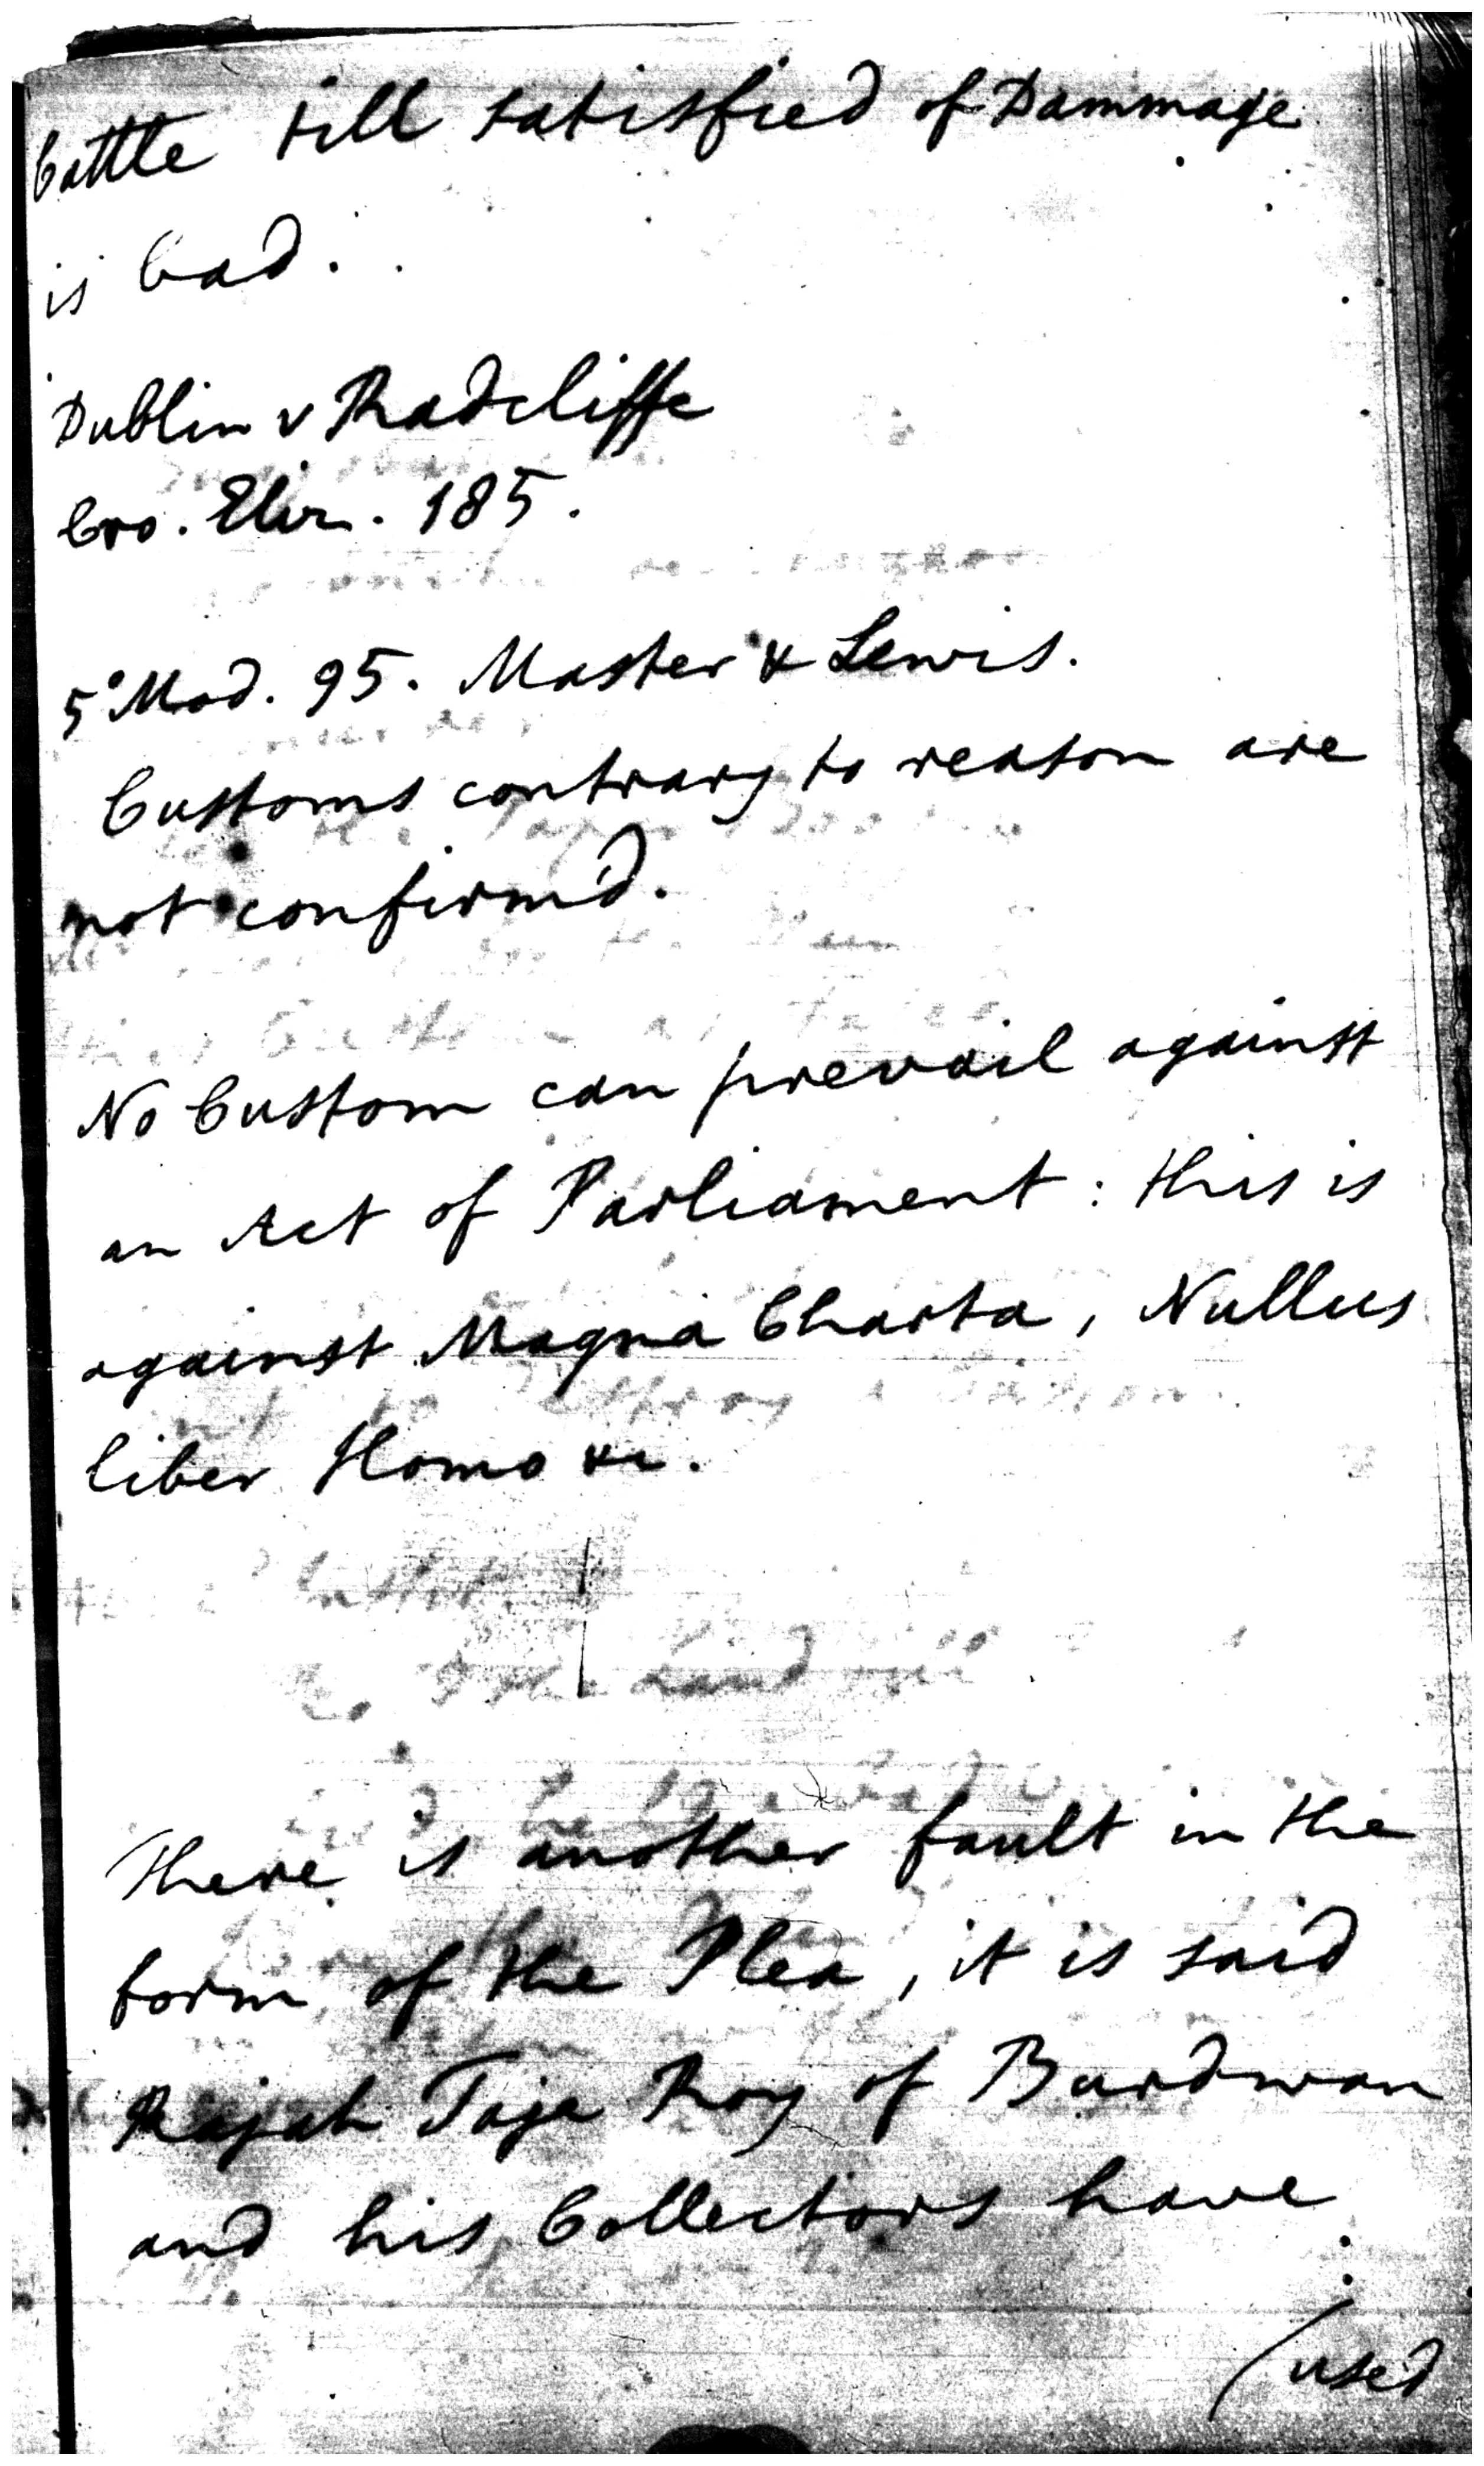 Cattle till satisfied of Dammage
is bad.
Dublin v Radcliffe
Cro. Eliz. 185.
5 Mod. 95. Master & Lewis.
Customs contrary to reason are
not confirm'd.
No Custom can prevail against
an Act of Parliament: this is
against Magna Charta, Nullus
liber Homo &c.
There is another fault in the
form of the Plea, it is said
Rajah Taje Roy of Burdwan
and his Collectors have
(used